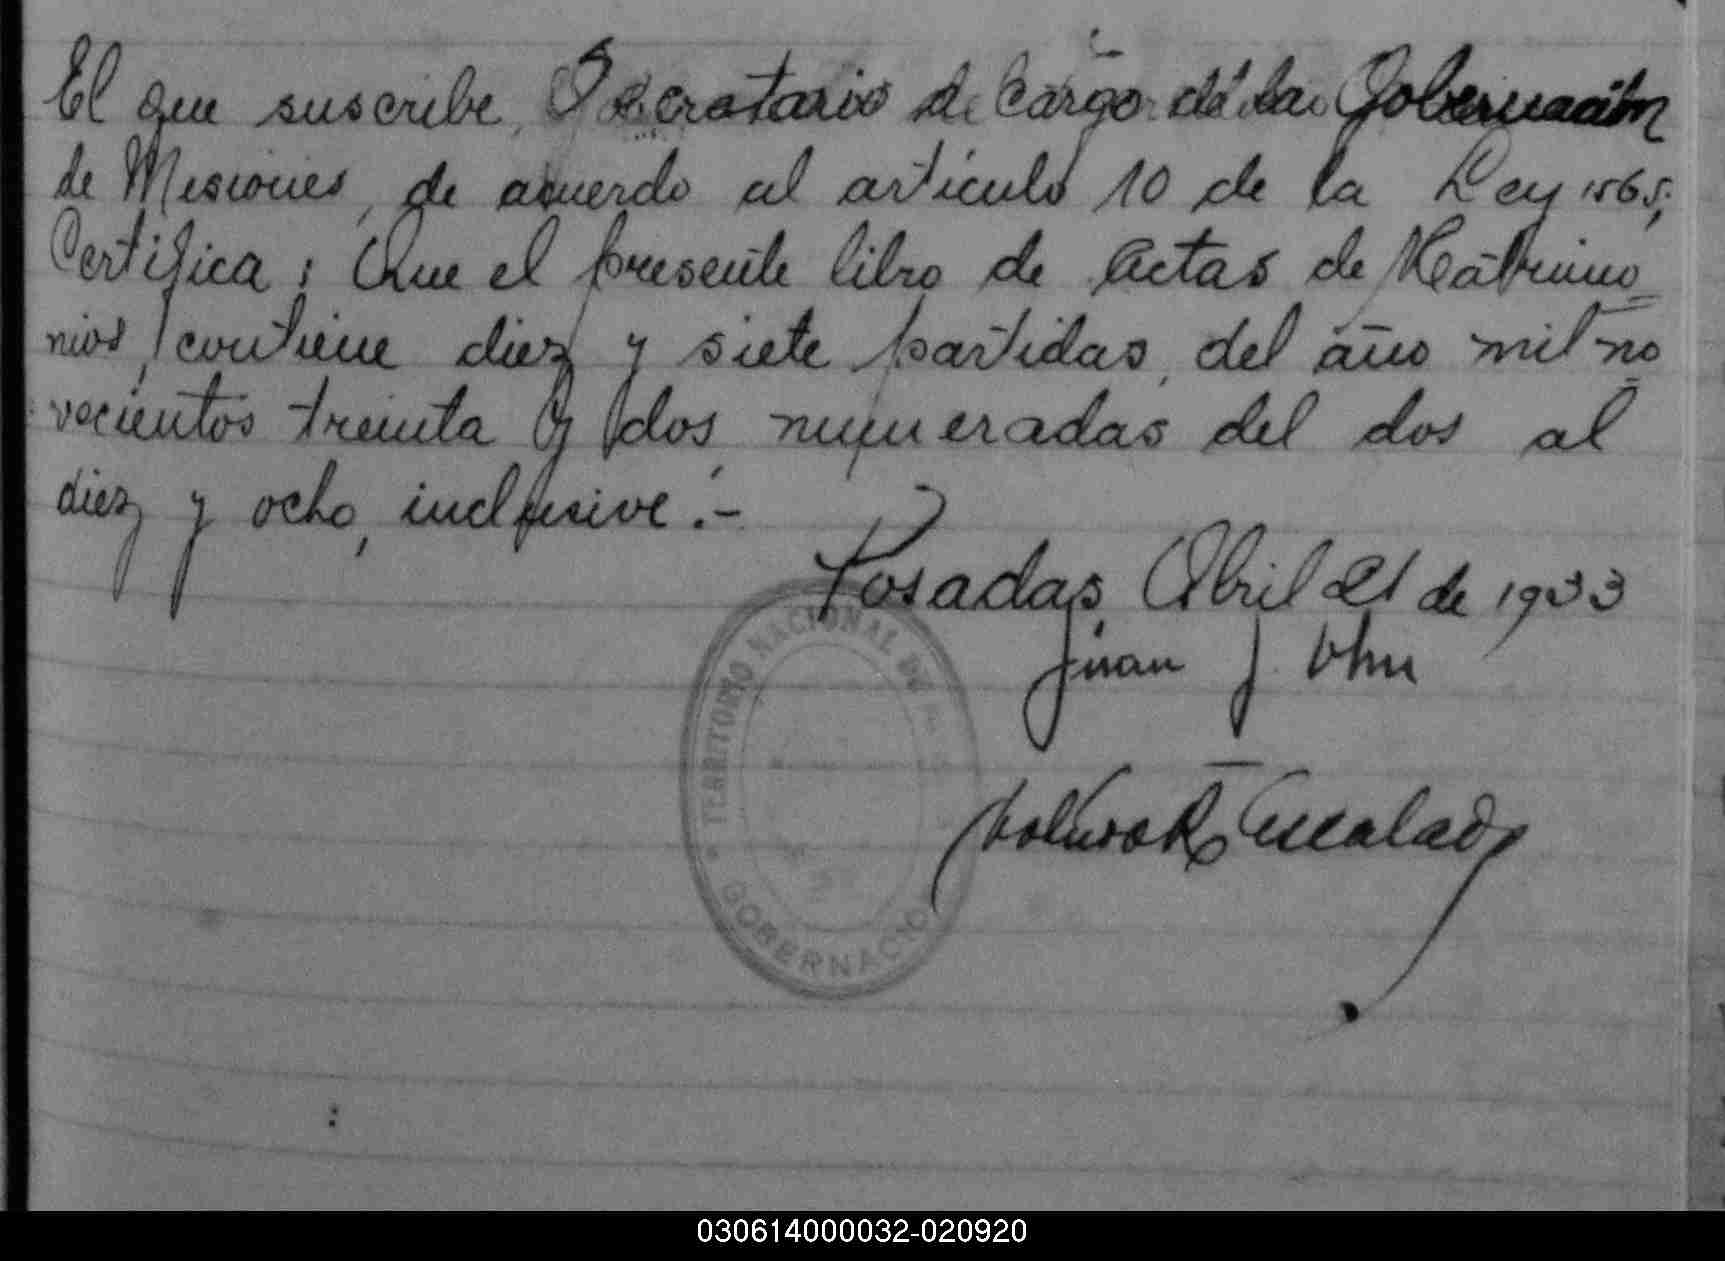 El que suscribe, Secretario de Cargo de la Gobernación
de Misiones, de acuerdo al artículo 10 de la Ley 1565,
Certifica: Que el presente libro de Actas de Matrimo
nios, contiene diez y siete partidas, del año mil no
vecientos treinta y dos numeradas del dos al
diez y ocho, inclusive.-
Posadas, Abril 21 de 1933
Juan J.
TERRITORIO NACIONAL DE
GOBERNACIO
030614000032-020920